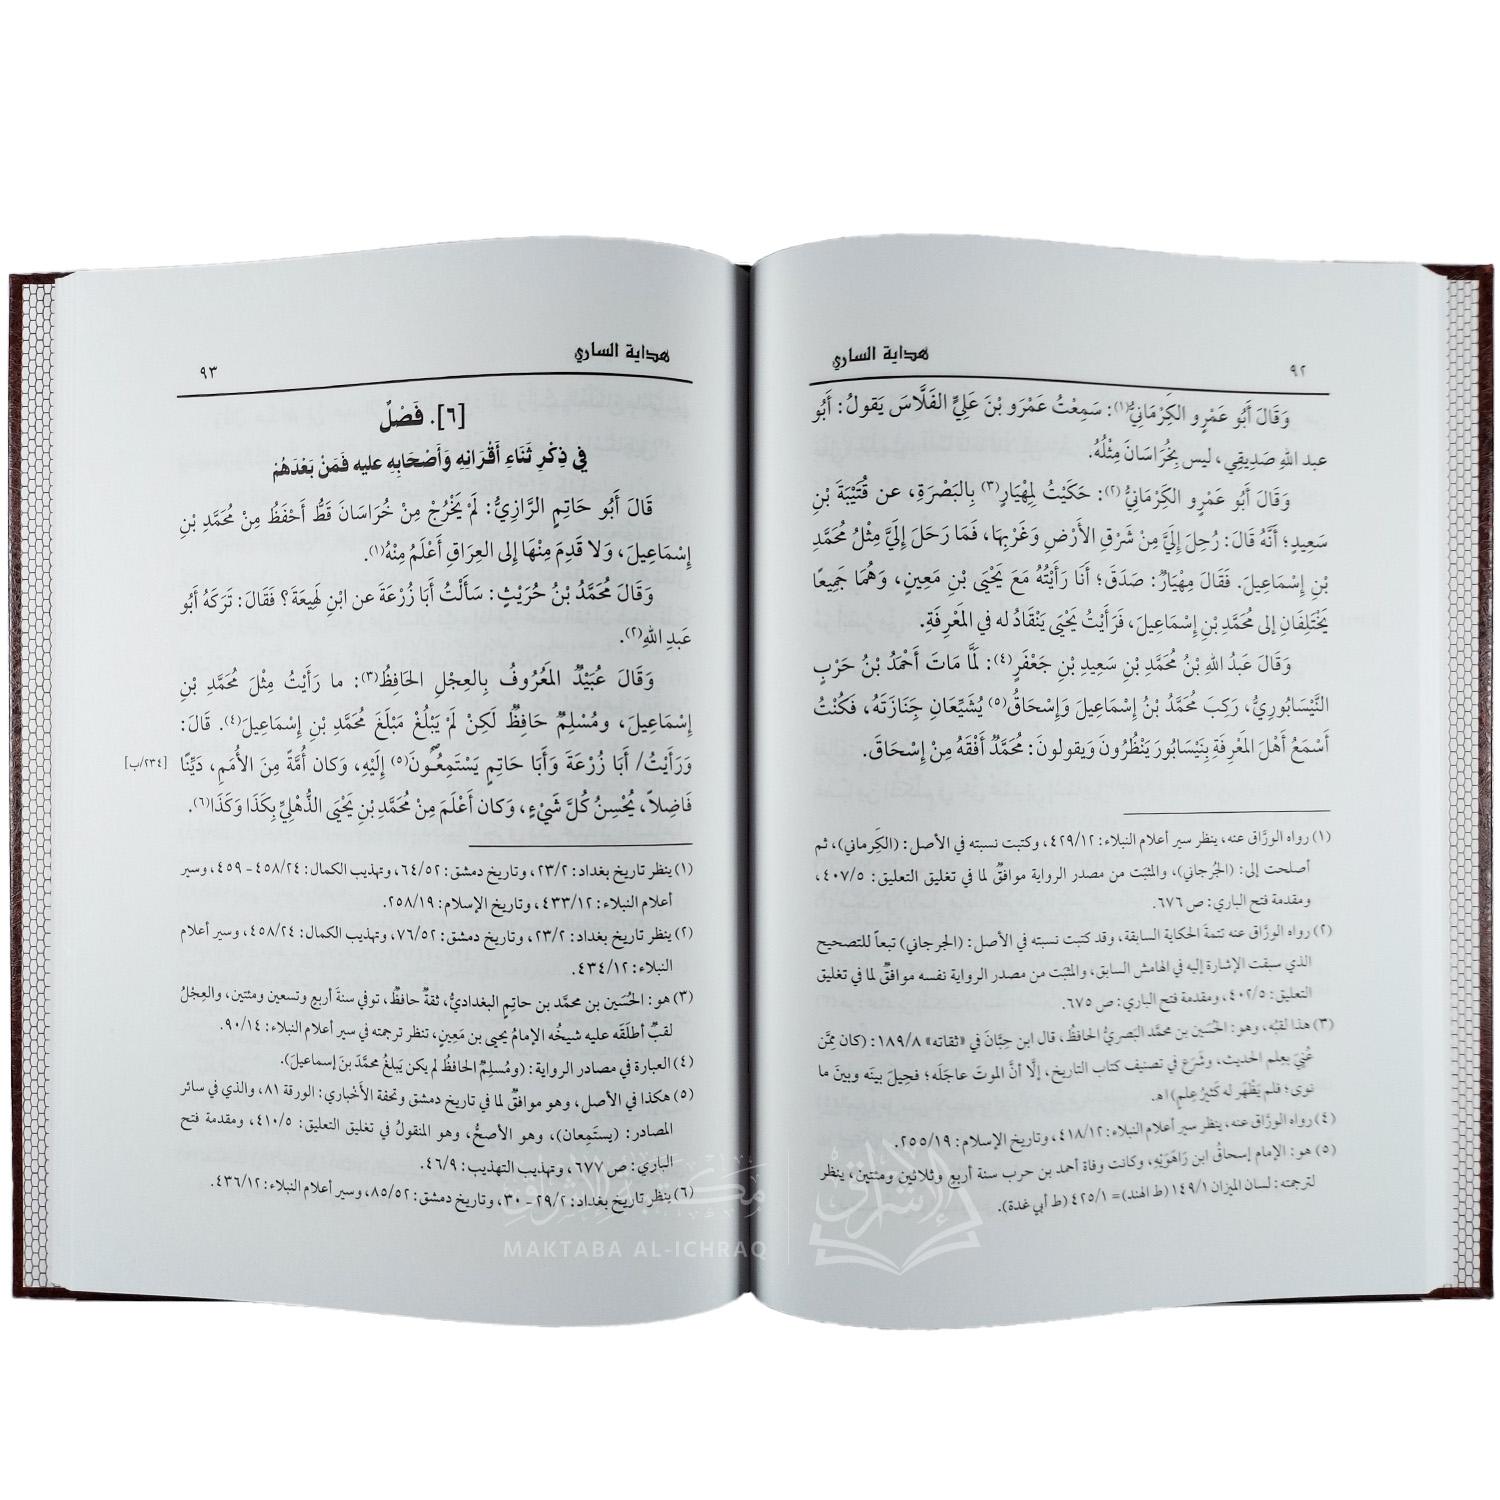 هداية الساري
٩٢
وَقَالَ أَبُو عَمْرٍو الكِرْمَانِيُّ(١): سَمِعْتُ عَمْرَو بْنَ عَلِيٍّ الفَلَّاسَ يَقولُ: أَبُو
عبد اللهِ صَدِيقِي، ليس بِخُرَاسَانَ مِثْلُهُ.
وَقَالَ أَبُو عَمْرٍو الكِرْمَانِيُّ(٢): حَكَيْتُ لِمِهْيَارٍ(٣) بِالبَصْرَةِ، عن قُتَيْبَةَ بْنِ
سَعِيدٍ؛ أَنَّهُ قَالَ: رُحِلَ إِلَيَّ مِنْ شَرْقِ الأَرْضِ وَغَرْبِهَا، فَمَا رَحَلَ إِلَيَّ مِثْلُ مُحَمَّدِ
بْنِ إِسْمَاعِيلَ. فَقَالَ مِهْيَارٌ: صَدَقَ؛ أَنَا رَأَيْتُهُ مَعَ يَحْيَى بْنِ مَعِينٍ، وَهُمَا جَمِيعًا
يَخْتَلِفَانِ إلى مُحَمَّدِ بْنِ إِسْمَاعِيلَ، فَرَأَيْتُ يَحْيَى يَنْقَادُ له في المَعْرِفَةِ.
وَقَالَ عَبدُ اللهِ بْنُ مُحَمَّدِ بْنِ سَعِيدِ بْنِ جَعْفَرٍ(٤): لَمَّا مَاتَ أَحْمَدُ بْنُ حَرْبٍ
النَّيْسَابُورِيُّ، رَكِبَ مُحَمَّدُ بْنُ إِسْمَاعِيلَ وَإِسْحَاقُ(٥) يُشَيِّعَانِ جِنَازَتَهُ، فَكُنْتُ
أَسْمَعُ أَهْلَ المَعْرِفَةِ بِنَيْسَابُورَ يَنْظُرُونَ وَيقولونَ: مُحَمَّدٌ أَفْقَهُ مِنْ إِسْحَاقَ.
(١) رواه الورَّاق عنه، ينظر سير أعلام النبلاء: ٤٢٩/١٢، وكتبت نسبته في الأصل: (الكَرماني)، ثم
أصلحت إلى: (الجُرجاني)، والمثبَت من مصدر الرواية موافقٌ لما في تغليق التعليق: ٤٠٧/٥،
ومقدمة فتح الباري: ص ٦٧٦.
(٢) رواه الورَّاق عنه تتمةَ الحكاية السابقة، وقد كتبت نسبته في الأصل: (الجرجاني) تبعاً للتصحيح
الذي سبقت الإشارة إليه في الهامش السابق، والمثبَت من مصدر الرواية نفسه موافقٌ لما في تغليق
التعليق: ٤٠٢/٥، ومقدمة فتح الباري: ص ٦٧٥.
(٣) هذا لقبُه، وهو: الحُسَين بن محمَّد البَصريُّ الحافظُ، قال ابن حِبَّانَ في «ثقاته» ١٨٩/٨: (كان مِمَّن
عُنِيَ بعِلم الحديث، وشَرَع في تصنيف كتاب التاريخ، إلَّا أنَّ الموتَ عاجَلَه؛ فحِيلَ بينَه وبينَ ما
نوى؛ فلم يَظْهَر له كَثيرُ عِلمٍ) اهـ.
(٤) رواه الورَّاق عنه، ينظر سير أعلام النبلاء: ٤١٨/١٢، وتاريخ الإسلام: ٢٥٥/١٩.
(٥) هو: الإمام إسحاقُ ابن رَاهَوَيْهِ، وكانت وفاة أحمد بن حرب سنة أربع وثلاثين ومئتين، ينظر
لترجمته: لسان الميزان ١٤٩/١ (ط الهند)= ٤٢٥/١ (ط أبي غدة).
هداية الساري
٩٣
[٦]. فَصْلٌ
في ذِكْرِ ثَنَاءِ أَقْرَانِه وَأَصْحَابِه عليه فَمَنْ بَعْدَهُمْ
قَالَ أَبُو حَاتِمٍ الرَّازِيُّ: لَمْ يَخْرُجْ مِنْ خُرَاسَانَ قَطُّ أَحْفَظُ مِنْ مُحَمَّدِ بْنِ
إِسْمَاعِيلَ، وَلَا قَدِمَ مِنْهَا إِلى العِرَاقِ أَعْلَمُ مِنْهُ(١).
وَقَالَ مُحَمَّدُ بْنُ حُرَيْثٍ: سَأَلْتُ أَبَا زُرْعَةَ عن ابْنِ لَهِيعَةَ؟ فَقَالَ: تَرَكَهُ أَبُو
عَبدِ اللهِ(٢).
وَقَالَ عُبَيْدٌ المَعْرُوفُ بِالعِجْلِ الحَافِظُ(٣): ما رَأَيْتُ مِثْلَ مُحَمَّدِ بْنِ
إِسْمَاعِيلَ، ومُسْلِمٌ حَافِظٌ لَكِنْ لَمْ يَبْلُغْ مَبْلَغَ مُحَمَّدِ بْنِ إِسْمَاعِيلَ(٤). قَالَ:
وَرَأَيْتُ/ أَبَا زُرْعَةَ وَأَبَا حَاتِمٍ يَسْتَمِعُونَ(٥) إِلَيْهِ، وَكَان أُمَّةً مِنَ الأُمَمِ، دَيِّنًا [٢٣٤/ب]
فَاضِلاً، يُحْسِنُ كُلَّ شَيْءٍ، وَكان أَعْلَمَ مِنْ مُحَمَّدِ بْنِ يَحْيَى الذُّهْلِيِّ بِكَذَا وَكَذَا(٦).
(١) ينظر تاريخ بغداد: ٢٣/٢، وتاريخ دمشق: ٦٤/٥٢، وتهذيب الكمال: ٤٥٨/٢٤- ٤٥٩، وسير
أعلام النبلاء: ٤٣٣/١٢، وتاريخ الإسلام: ٢٥٨/١٩.
(٢) ينظر تاريخ بغداد: ٢٣/٢، وتاريخ دمشق: ٧٦/٥٢، وتهذيب الكمال: ٤٥٨/٢٤، وسير أعلام
النبلاء: ٤٣٤/١٢.
(٣) هو: الحُسَين بن محمَّد بن حاتِم البغداديُّ، ثقةٌ حافظٌ، توفي سنةَ أربع وتسعين ومئتين، والعِجْلُ
لقبٌ أطلَقَه عليه شيخُه الإمامُ يحيى بن مَعِينٍ، تنظر ترجمته في سير أعلام النبلاء: ٩٠/١٤.
(٤) العبارة في مصادر الرواية: (ومُسلِمٌ الحافظُ لم يكن يَبلغُ محمَّدَ بنَ إسماعيلَ).
(٥) هكذا في الأصل، وهو موافقٌ لما في تاريخ دمشق وتحفة الأخباري: الورقة ٨١، والذي في سائر
المصادر: (يستَمِعان)، وهو الأصحُّ، وهو المنقولُ في تغليق التعليق: ٤١٠/٥، ومقدمة فتح
الباري: ص ٦٧٧، وتهذيب التهذيب: ٤٦/٩.
(٦) ينظر تاريخ بغداد: ٢٩/٢- ٣٠، وتاريخ دمشق: ٨٥/٥٢، وسير أعلام النبلاء: ٤٣٦/١٢.
مكتبة الإشراق
MAKTABA AL-ICHRAQ
الإشراق